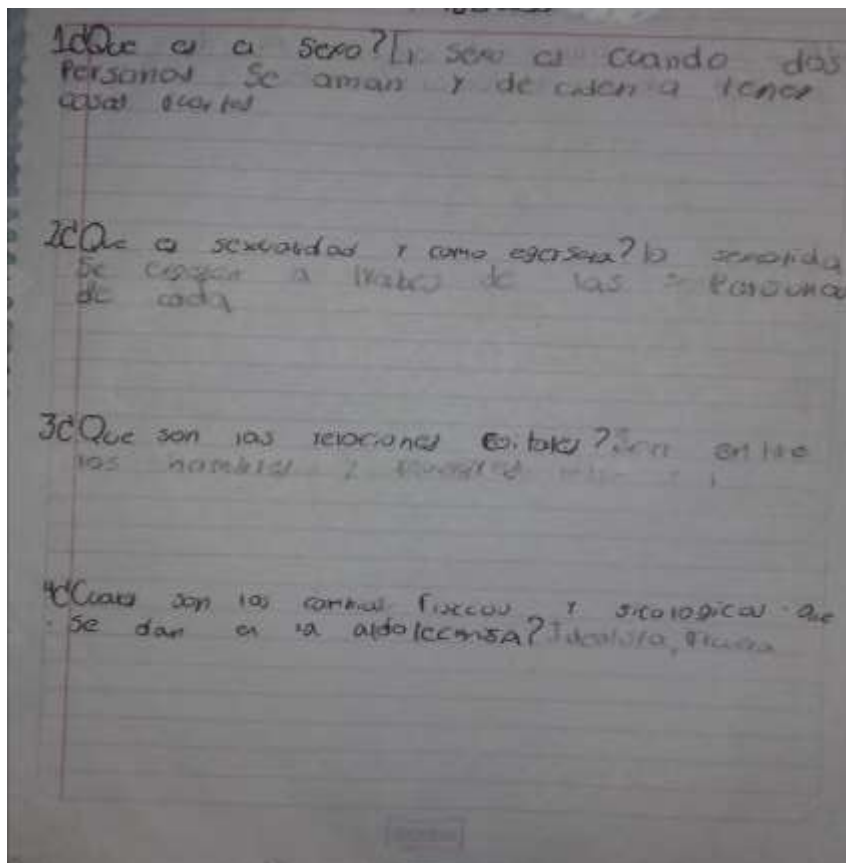 1¿Que es el sexo? El sexo es cuando dos
Personas se aman y de ciden a tener
cosas
2¿Que es sexualidad y como egersera? la sexualida
se a trabes de las Persona
de cada
3¿Que son las relaciones Coitales? Son entre
los hombres y
4¿Cuales son los cambios fisicos y sicologicos que
se dan en la aldolecensa? Idealista,